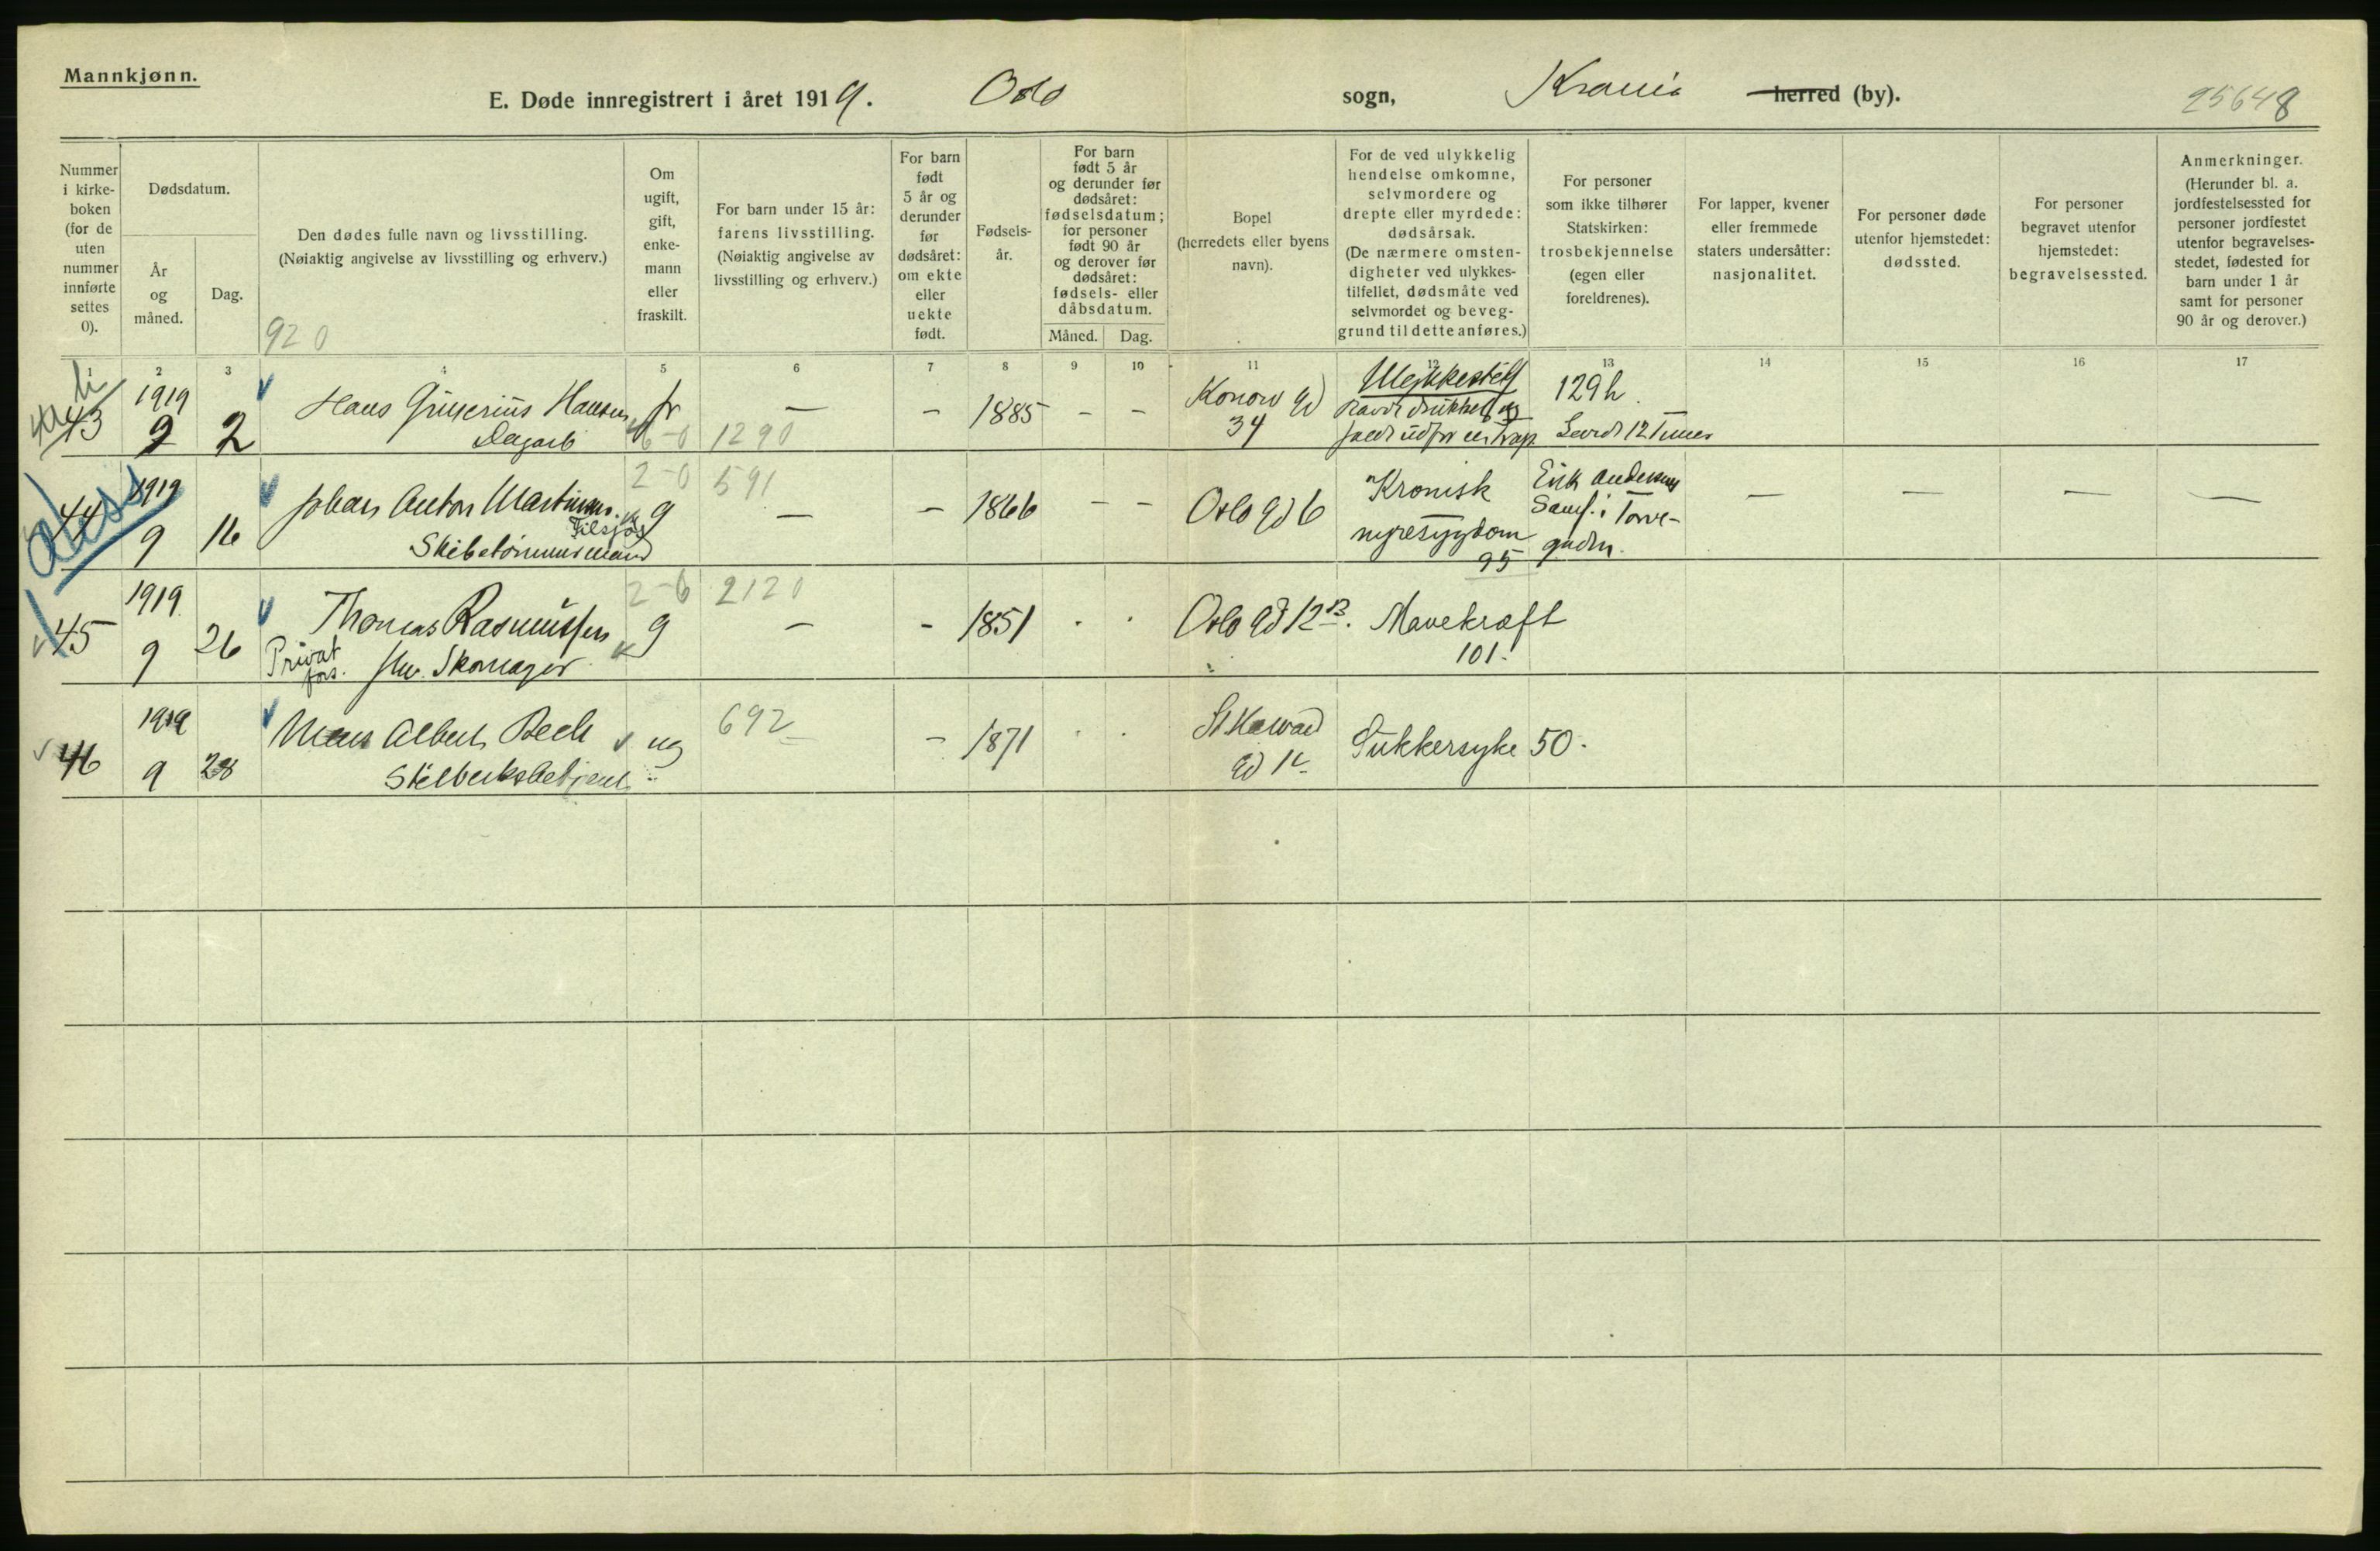 Mannkjønn.
E. Døde innregistrert i året 1919. Oslo sogn, Krania herred (by). 25648
Nummer i kirke-boken (for de uten nummer innførte settes 0).
Dødsdatum.
År og måned.
Dag.
Den dødes fulle navn og livsstilling.
(Nøiaktig angivelse av livsstilling og erhverv.)
920
Om ugift, gift, enke-mann eller fraskilt.
For barn under 15 år: farens livsstilling.
(Nøiaktig angivelse av livsstilling og erhverv.)
For barn født 5 år og derunder før dødsåret: om ekte eller uekte født.
Fødsels-år.
For barn født 5 år og derunder før dødsåret: fødselsdatum; for personer født 90 år og derover før dødsåret: fødsels- eller dåbsdatum.
Måned. Dag.
Bopel
(herredets eller byens navn).
For de ved ulykkelig hendelse omkomne, selvmordere og drepte eller myrdede: dødsårsak.
(De nærmere omsten-digheter ved ulykkes-tilfellet, dødsmåte ved selvmordet og beveg-grund til dette anføres.)
For personer som ikke tilhører Statskirken: trosbekjennelse (egen eller foreldrenes).
For lapper, kvener eller fremmede staters undersåtter: nasjonalitet.
For personer døde utenfor hjemstedet: dødssted.
For personer begravet utenfor hjemstedet: begravelsessted.
Anmerkninger.
(Herunder bl. a. jordfestelsessted for personer jordfestet utenfor begravelses-stedet, fødested for barn under 1 år samt for personer 90 år og derover.)
1 2 3 4 5 6 7 8 9 10 11 12 13 14 15 16 17
43 1919 9 2 Hans Hansen fr — — 1885 — — Konow Gd 34 129 h.
Dagarb 6-0 1290 12 Timer
44 1919 9 16 Johan Anton 2-0 591 g — — 1866 — — Oslo Gd 6 Kronisk nyresygdom 95 Erik Andersens Samf. i Torve-gaden. — — — —
Skibstømmermand
45 1919 9 26 Thomas Rasmussen 2-6 2120 g — — 1851 Oslo Gd 12 B. Mavekræft 101.
Privat fors. fhv. Skomager
46 1919 9 28 Albert Bech ug 692 — 1871 St Halvard Gd 1 Sukkersyke 50.